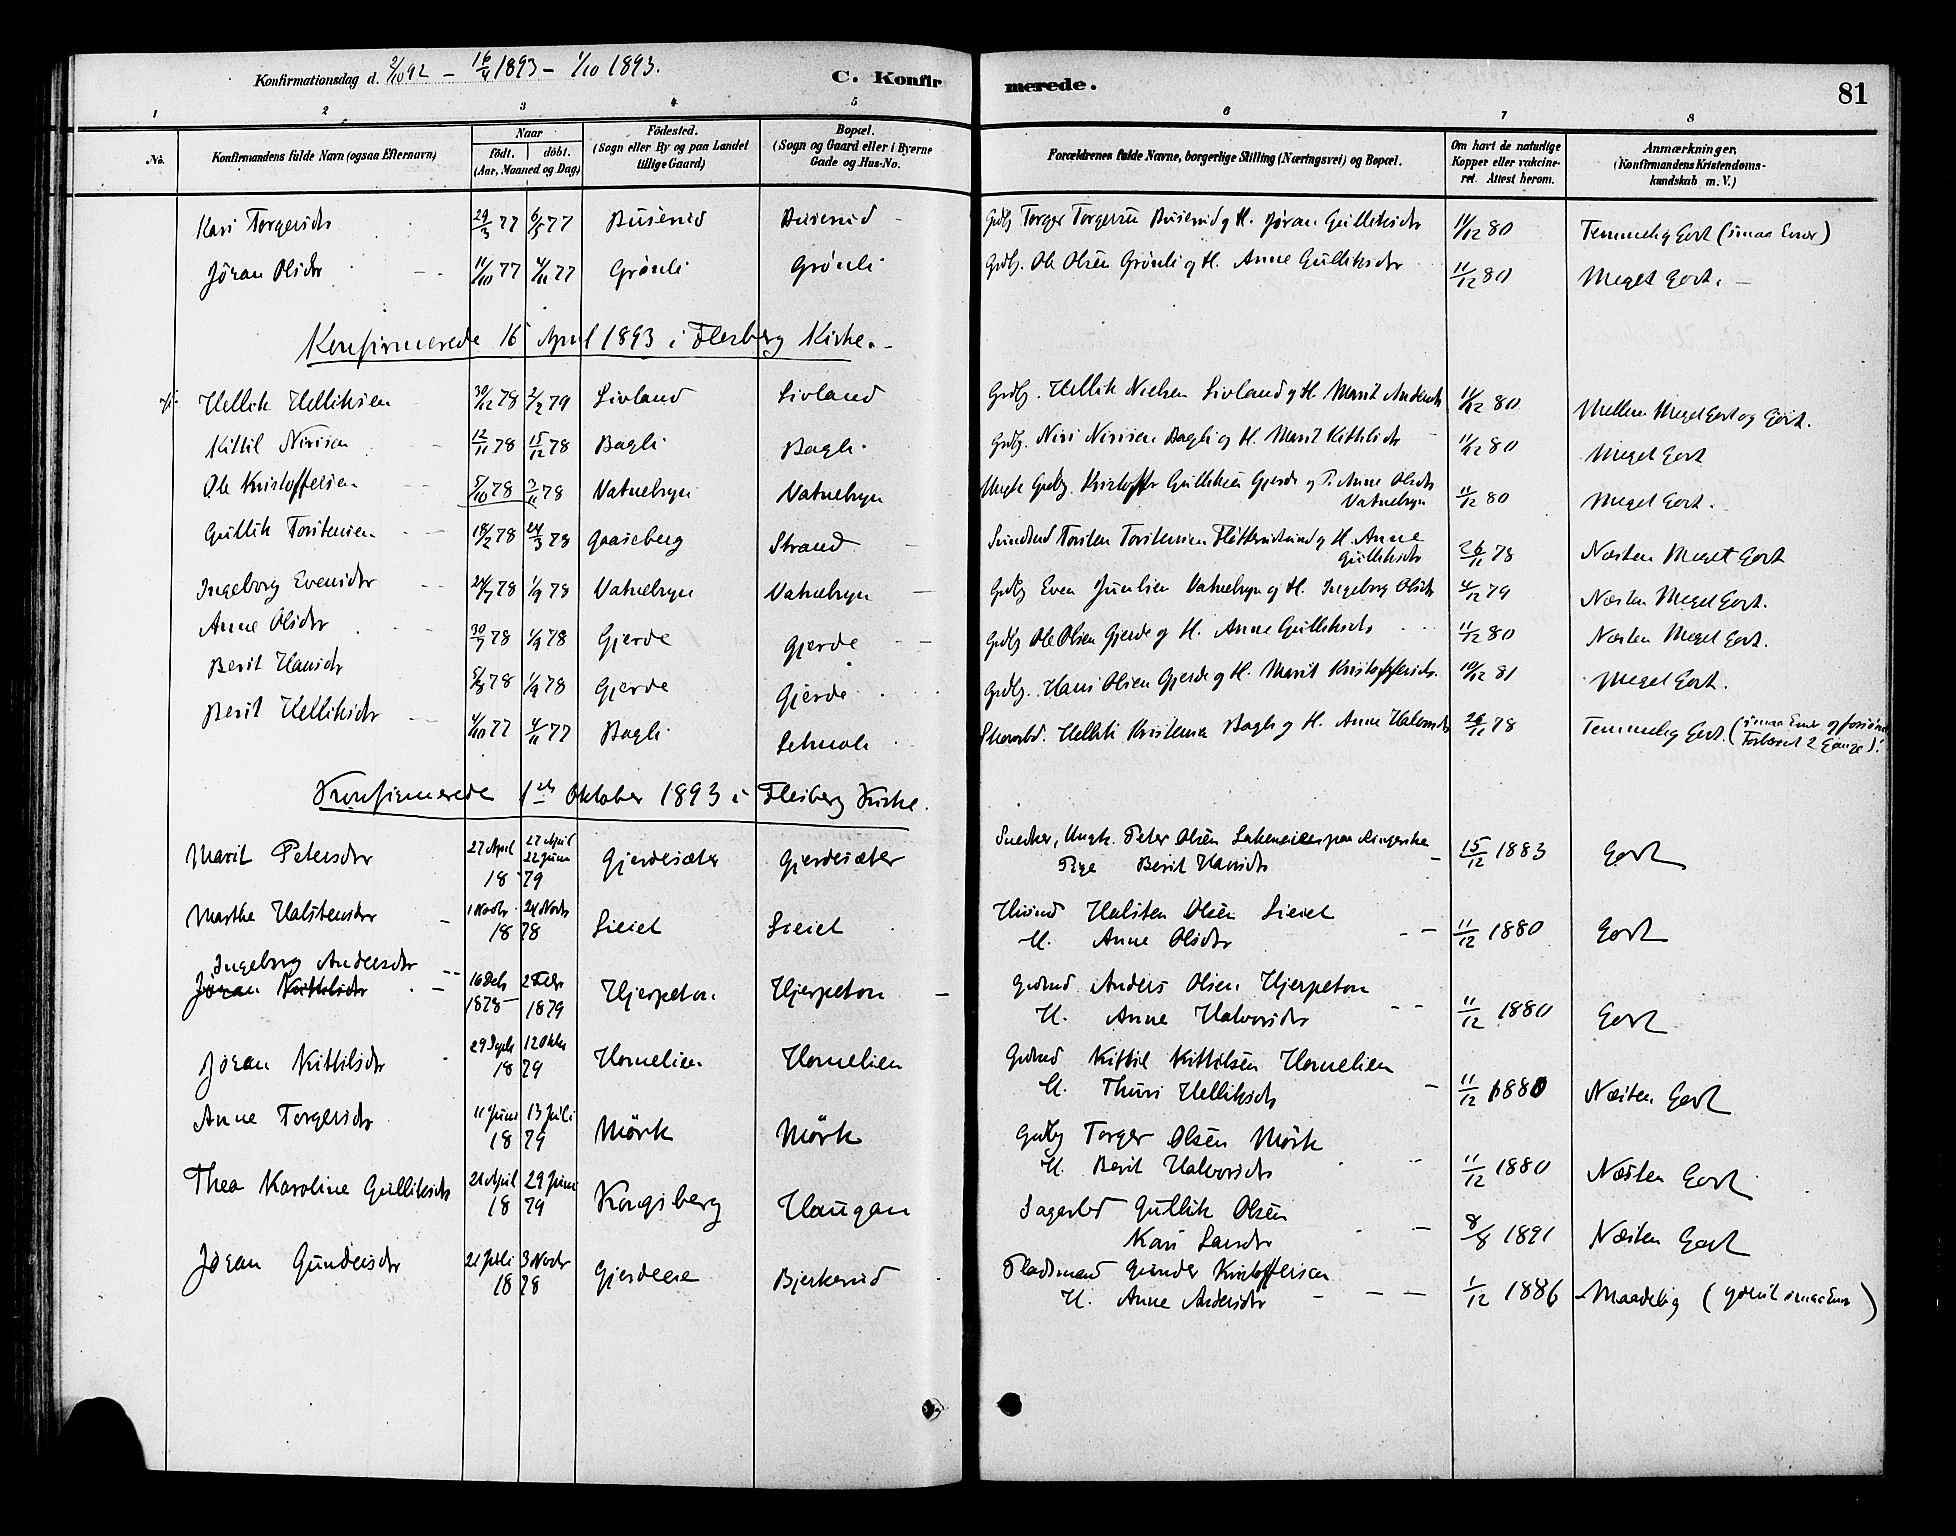 Konfirmationsdag d. 2/10 92 – 16/4 1893 – 1/10 1893. C. Konfirmerede. 81
1 2 3 4 5 6 7 8
No. Konfirmandens fulde Navn (ogsaa Efternavn) Naar født. døbt. (Aar, Maaned og Dag) Fødested. (Sogn eller By og paa Landet tillige Gaard) Bopæl. (Sogn og Gaard eller i Byerne Gade og Hus-No. Forældrenes fulde Navne, borgerlige Stilling (Næringsvei) og Bopæl. Om havt de naturlige Kopper eller vakcineret. Attest herom. Anmærkninger. (Konfirmandens Kristendomskundskab m. V.)
Kari Torgersdr 29/3 77 6/5 77 Busenid Busenid Gdbg Torger Torgersen Busenid og H. Jøran Gulliksdr 11/12 80 Temmelig Godt (smaa Evner)
Jöran Olsdr 11/10 77 4/11 77 Grönli Grönli Gdbg. Ole Olsen Grönli og H. Anne Gulliksdr 11/12 80 Meget Godt.
Konfirmerede 16 April 1893 i Flesberg Kirke.
Hellik Helliksen 30/12 78 2/2 79 Livland Livland Gdbg. Hellik Nielsen Livland og H. Marit Andersdr 11/12 80 Mellem Meget Godt og Godt.
Kittil Nirisen 12/11 78 15/12 78 Bagli Bagli Gdbg. Niri Nirisen Bagli og H. Marit Kittilsdr 11/12 80 Meget Godt
Ole Kristoffersen 5/10 78 3/11 78 Vatnebryn Vatnebryn Ungk Gdbg. Kristoffer Gulliksen Gjerde og P. Anne Olsdr Vatnebryn 11/12 80 Meget Godt.
Gullik Torstensen 18/2 78 24/3 78 Gaaseberg Strand Torsten Torstensen og H. Anne Gulliksdr 26/11 78 Næsten Meget Godt
Ingeborg Evensdr 24/7 78 1/9 78 Vatnebryn Vatnebryn Gdbg Even Juulsen Vatnebryn og H. Ingeborg Olsdr 4/12 79 Næsten Meget Godt.
Anne Olsdr 30/7 78 1/9 78 Gjerde Gjerde Gdbg Ole Olsen Gjerde og H. Anne Gulliksdr 11/12 80 Næsten Meget Godt.
Berit Hansdr 5/8 78 1/9 78 Gjerde Gjerde Gdbg. Hans Olsen Gjerde og H. Marit Kristoffersdr. 10/12 81 Meget Godt.
Berit Helliksdr 4/10 77 4/11 77 Bagli Hellik Kristensen Bagli og H. Anne Halvorsdr 26/11 78 Temmelig Godt. (smaa Evner og
Konfirmerede 1ste Oktober 1893 i Flesberg Kirke.
Marit Petersdr 27 April 22 Juni 1879 Gjerdesæter Gjerdesæter Snedker, Ungk. Peter Olsen paa Ringerike
Pige Berit Hansdr 15/12 1883 Godt
Marthe Halstensdr 1 Novbr 24 Novbr 1878 Lieiet Lieiet Husmd Halsten Olsen Lieiet
H. Anne Olsdr 11/12 1880 Godt
Ingeborg Andersdr
Jöran Kittilsdr 16 Decb 1878 2 Febr 1879 Hjerpeton Hjerpeton Gdmd Anders Olsen Hjerpeton
H. Anne Halvorsdr 11/12 1880 Godt
Jöran Kittilsdr 29 Septb 12 Oktbr 1879 Hornelien Hornelien Gdmd Kittil Kittilsen Hornelien
H. Thuri Helliksdr 11/12 1880 Næsten Godt
Anne Torgersdr 11 Juni 13 Juli 1879 Mörk Mörk Gdbg Torger Olsen Mörk
H. Berit Halvorsdr 11/12 1880 Næsten Godt
Thea Karoline Gulliksdr 21 April 29 Juni 1879 Kongsberg Haugan Sagarbd Gullik Olsen
Kari Larsdr 8/8 1891 Næsten Godt
Jöran Gundersdr 21 Juli 3 Novbr 1878 Gjerdeeie Bjerkerud Pladsmand Gunder Kristoffersen
H. Anne Andersdr 1/12 1886 Maadelig (yderst smaa Evner)